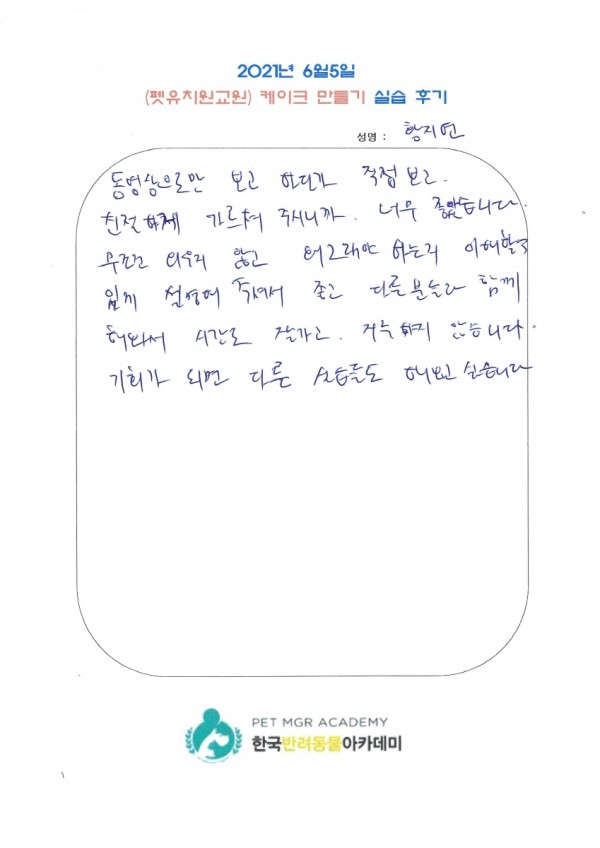 2021년 6월5일
(펫유치원교원) 케이크 만들기 실습 후기
성명 : 황지연
동영상으로만 보고 하다가 직접 보고.
친절하게 가르쳐 주시니까. 너무 좋았습니다.
무조건 외우지 않고 왜그래야 하는지 이해할수
있게 설명해 주셔서 좋고 다를분들과 함께
해와서 시간도 잘가고. 지루하지 않습니다.
기회가 되면 다른 실습들도 해보고 싶습니다
PET MGR ACADEMY
한국반려동물아카데미